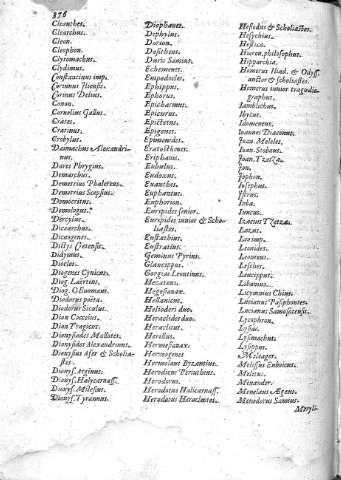 376
Cleanthes.
Clearchus.
Cleon.
Cleophon.
Clytomachus.
Clydimus.
Constantinus imp.
Corinnus Iliensis.
Corinus Delius.
Conon.
Cornelius Gallus.
Crates.
Cratinus.
Crobylus.
Daimachus Alexandri-
nus.
Dares Phrygius.
Demarchus.
Demetrius Phalereus.
Demetrius Scepsius.
Democritus.
Demologus.
Dercylus.
Dicearchus.
Diceogenes.
Dictys Cretensis.
Didymus.
Diocles.
Diogenes Cynicus.
Diog. Laërtius.
Diog. Œnomaus.
Diodorus poëta.
Diodorus Siculus.
Dion Cocceius.
Dion Tragicus.
Dionysiades Mallotes.
Dionysides Alexandrinus.
Dionysius Afer & Scholia-
stes.
Dionys. Argivus.
Dionys. Halycarnass.
Dionys. Milesius.
Dionys. Tyrannus.
Diophanes.
Diphylus.
Dorion.
Dositheus.
Duris Samius.
Echemenes.
Empedocles.
Ephippus.
Ephorus.
Epicharmus.
Epicurus.
Epictetus.
Epigenes.
Epimenides.
Eratosthenes.
Eriphanis.
Eubulus.
Eudoxus.
Euanthes.
Euphantus.
Euphorion.
Euripides senior.
Euripides iunior & Scho-
liastes.
Eustathius.
Eustratius.
Geminus Pyrius.
Glaucippus.
Gorgias Leontinus.
Hecatæus.
Hegesianax.
Hellanicus.
Heliodori duo.
Heraclides duo.
Heraclitus.
Herillus.
Hermesianax.
Hermogenes
Hermolaus Byzantius.
Herodicus Perinthius.
Herodorus.
Herodotus Halicarnass.
Herodotus Heracleotes.
Hesiodus & Scholiastes.
Hesychius.
Hestiæa.
Hieron. philosophus.
Hipparchia.
Homerus Iliad. & Odyss.
auctor & scholiastes.
Homerus iunior tragœdio-
graphus.
Iamblichus.
Ibycus.
Idomeneus.
Ioannes Diaconus.
Ioan. Meleles.
Ioan. Stobæus.
Ioan. Tzetza.
Ion.
Iophon.
Iosephus.
Istrus.
Iuba.
Iuncus.
Isacius Tzetzes.
Lacus.
Leo imp.
Leonides.
Leonteus.
Lesches.
Leucippus.
Libanius.
Licymnius Chius.
Lucianus Pasiphontes.
Lucianus Samosatensis.
Lycophron.
Lysias.
Lysimachus.
Lysippus.
Meleager.
Melesius Euboicus.
Melitus.
Menander.
Menelaus Ægeus.
Menodotus Samius.